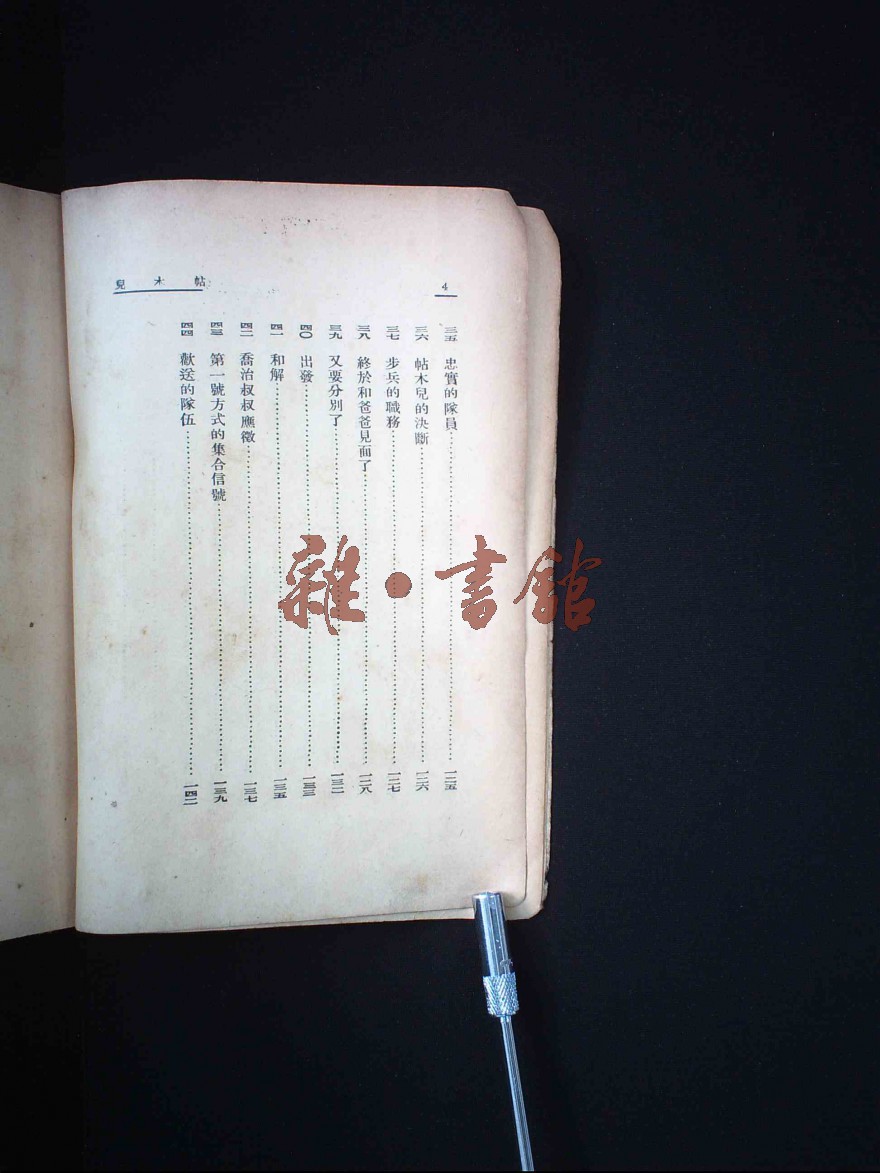 4
帖木兒
三五 忠實的隊員 一二五
三六 帖木兒的決斷 一二六
三七 步兵的職務 一二七
三八 終於和爸爸見面了 一二八
三九 又要分別了 一三二
四〇 出發 一三三
四一 和解 一三五
四二 喬治叔叔應徵 一三七
四三 第一號方式的集合信號 一三九
四四 歡送的隊伍 一四二
雜·書館